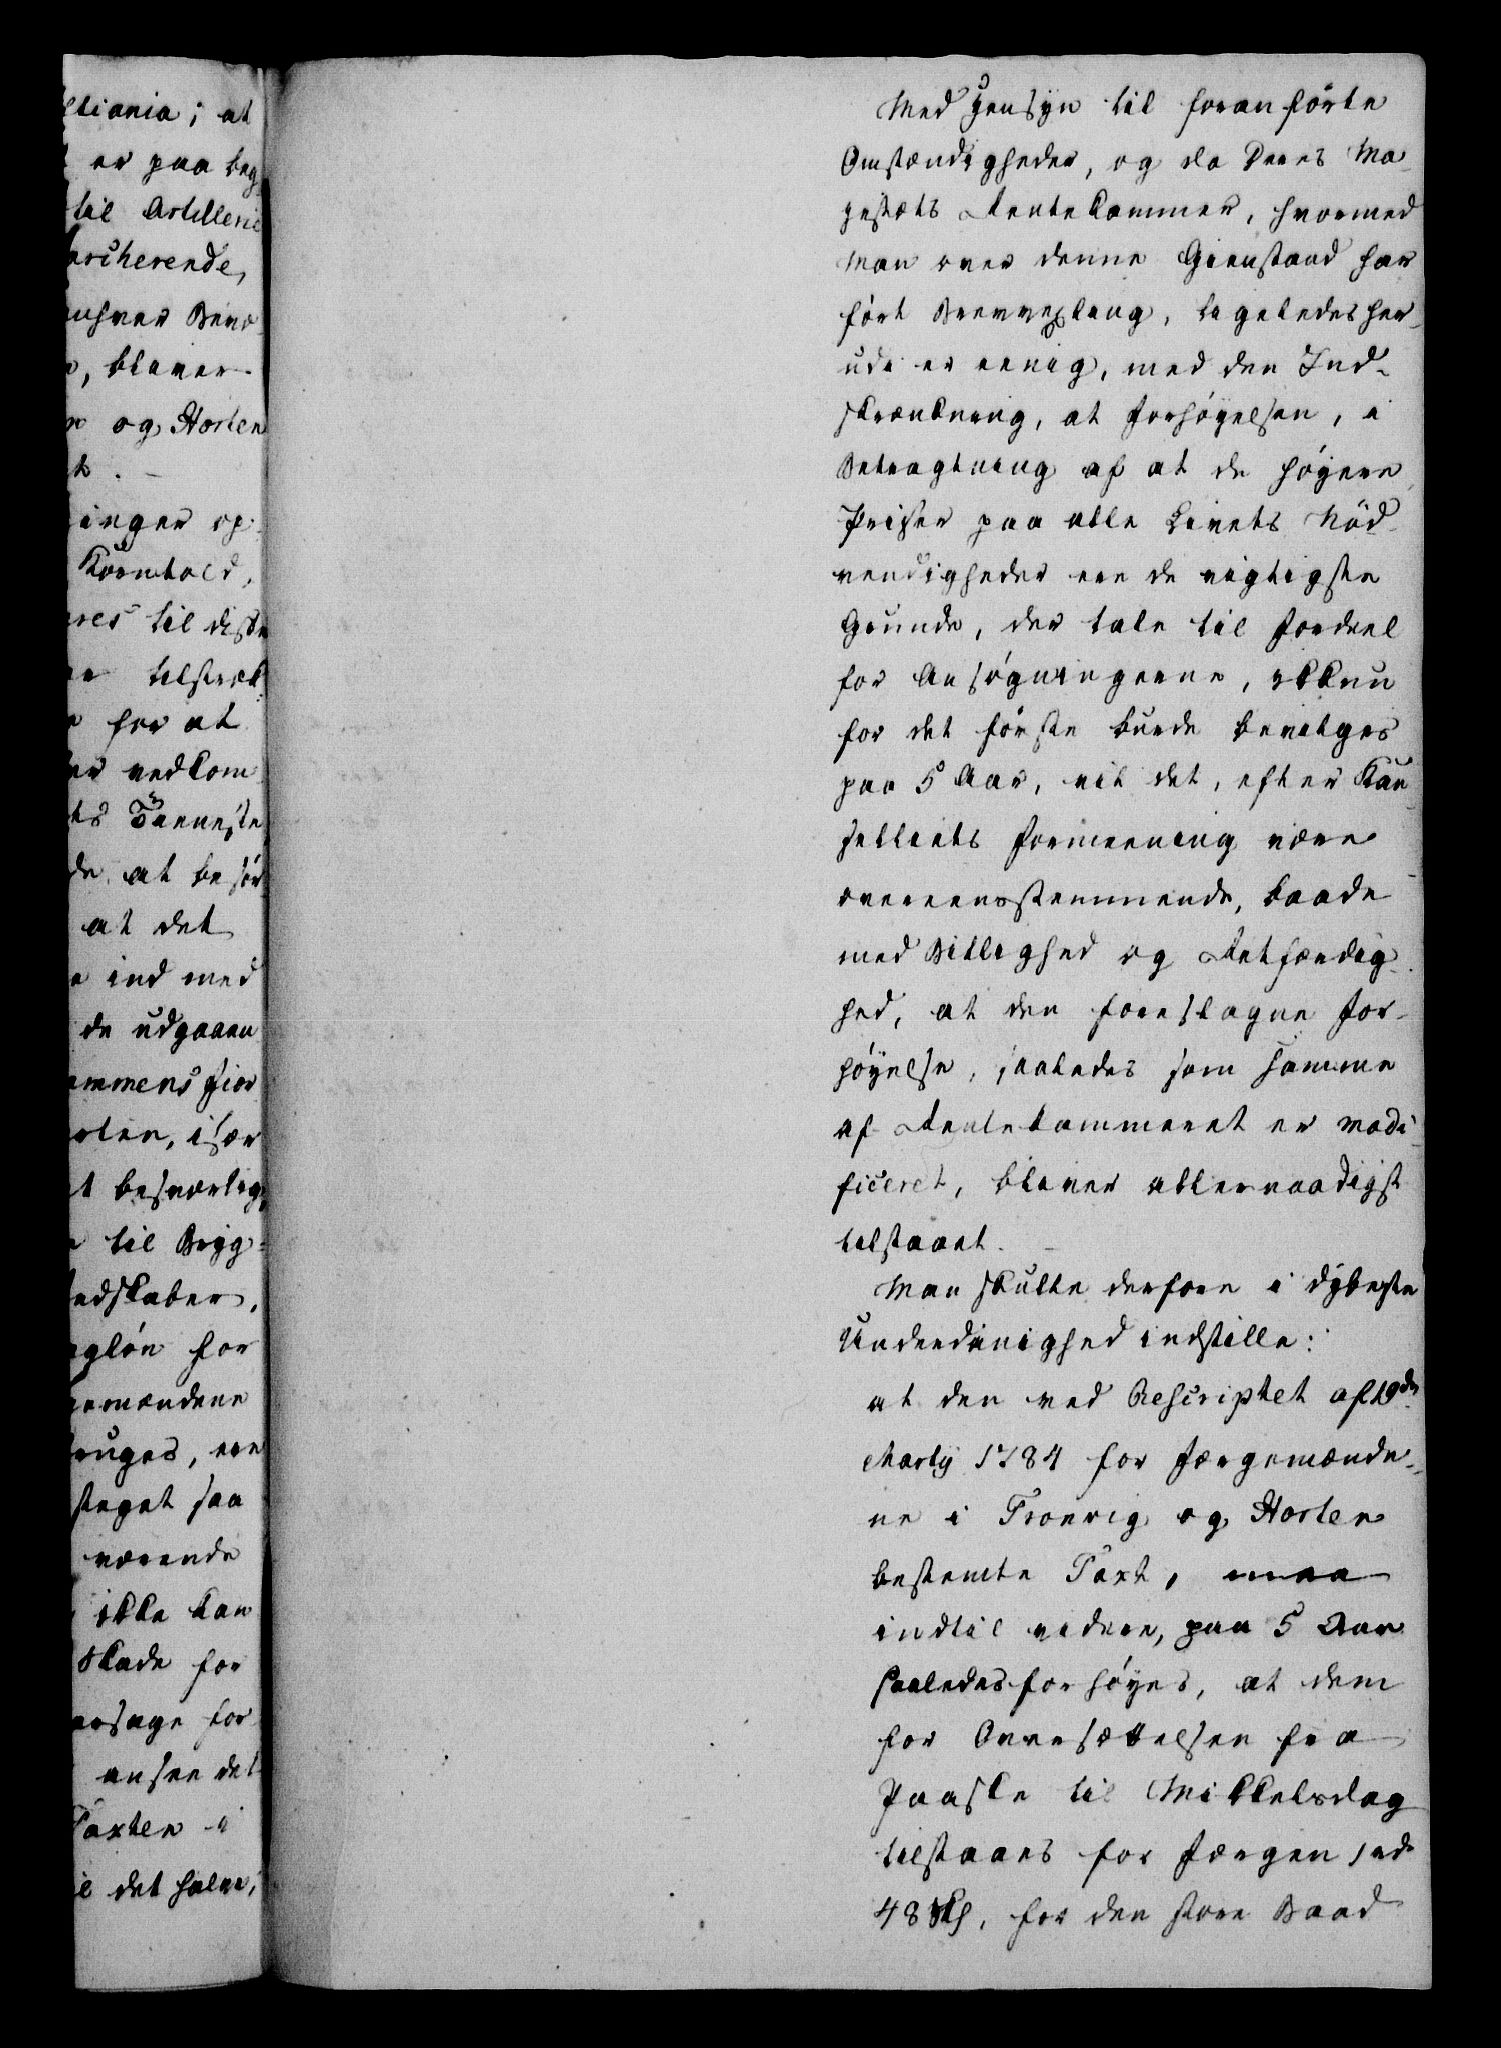 ltiania; at
er paa beg
til Artilleri
archerende,
enhver Bere
, bliver
og Horten
t. –
inger op-
Kornhold,
ares til disse
tilstræk-
for at
er vedkom
ts Tieneste
de at besør
at det
ind med
de udgaaen
ammens Fior
orten, især
t besværlig,
til Bryg=
edskaber,
agløn for
gemændene
ruges, ere
steget saa
værende
ikke kan
Skade for
arsage for
ansee det
Taxten i
il det halve,
Med Hensyn til foranførte
Omstændigheder, og da Deres Ma-
jestæts Rentekammer, hvormed
man over denne Gienstand har
ført Brevvexling, ligeledes her-
udi er eenig, med den Ind-
skrænkning, at Forhøyelsen, i
Betragtning af at de høyere
Priser paa alle Livets Nød-
vendigheder ere de vigtigste
Grunde, der tale til Fordeel
for Ansøgningerne, ikkun
for det første burde bevilges
paa 5 Aar, vil det, efter Kan-
selliets Formeening være
overeensstemmende, baade
med Billighed og Retfærdig-
hed, at den foreslagne For-
høyelse, saaledes som samme
af Rentekammeret er modi-
ficeret, bliver allernaadigst
tilstaaet. –
Man skulle derfore i dybeste
Underdanighed indstille:
at den ved Rescriptet af 19de
Martij 1784 for Færgemænde-
ne i Tronvig og Horten
bestemte Taxt, maa
indtil videre, paa 5 Aar
saaledes forhøyes, at dem
for Oversættelsen fra
Paaske til Mikkelsdag
tilstaaes for Færgen 1 rd.
48 sk, for den store Baad